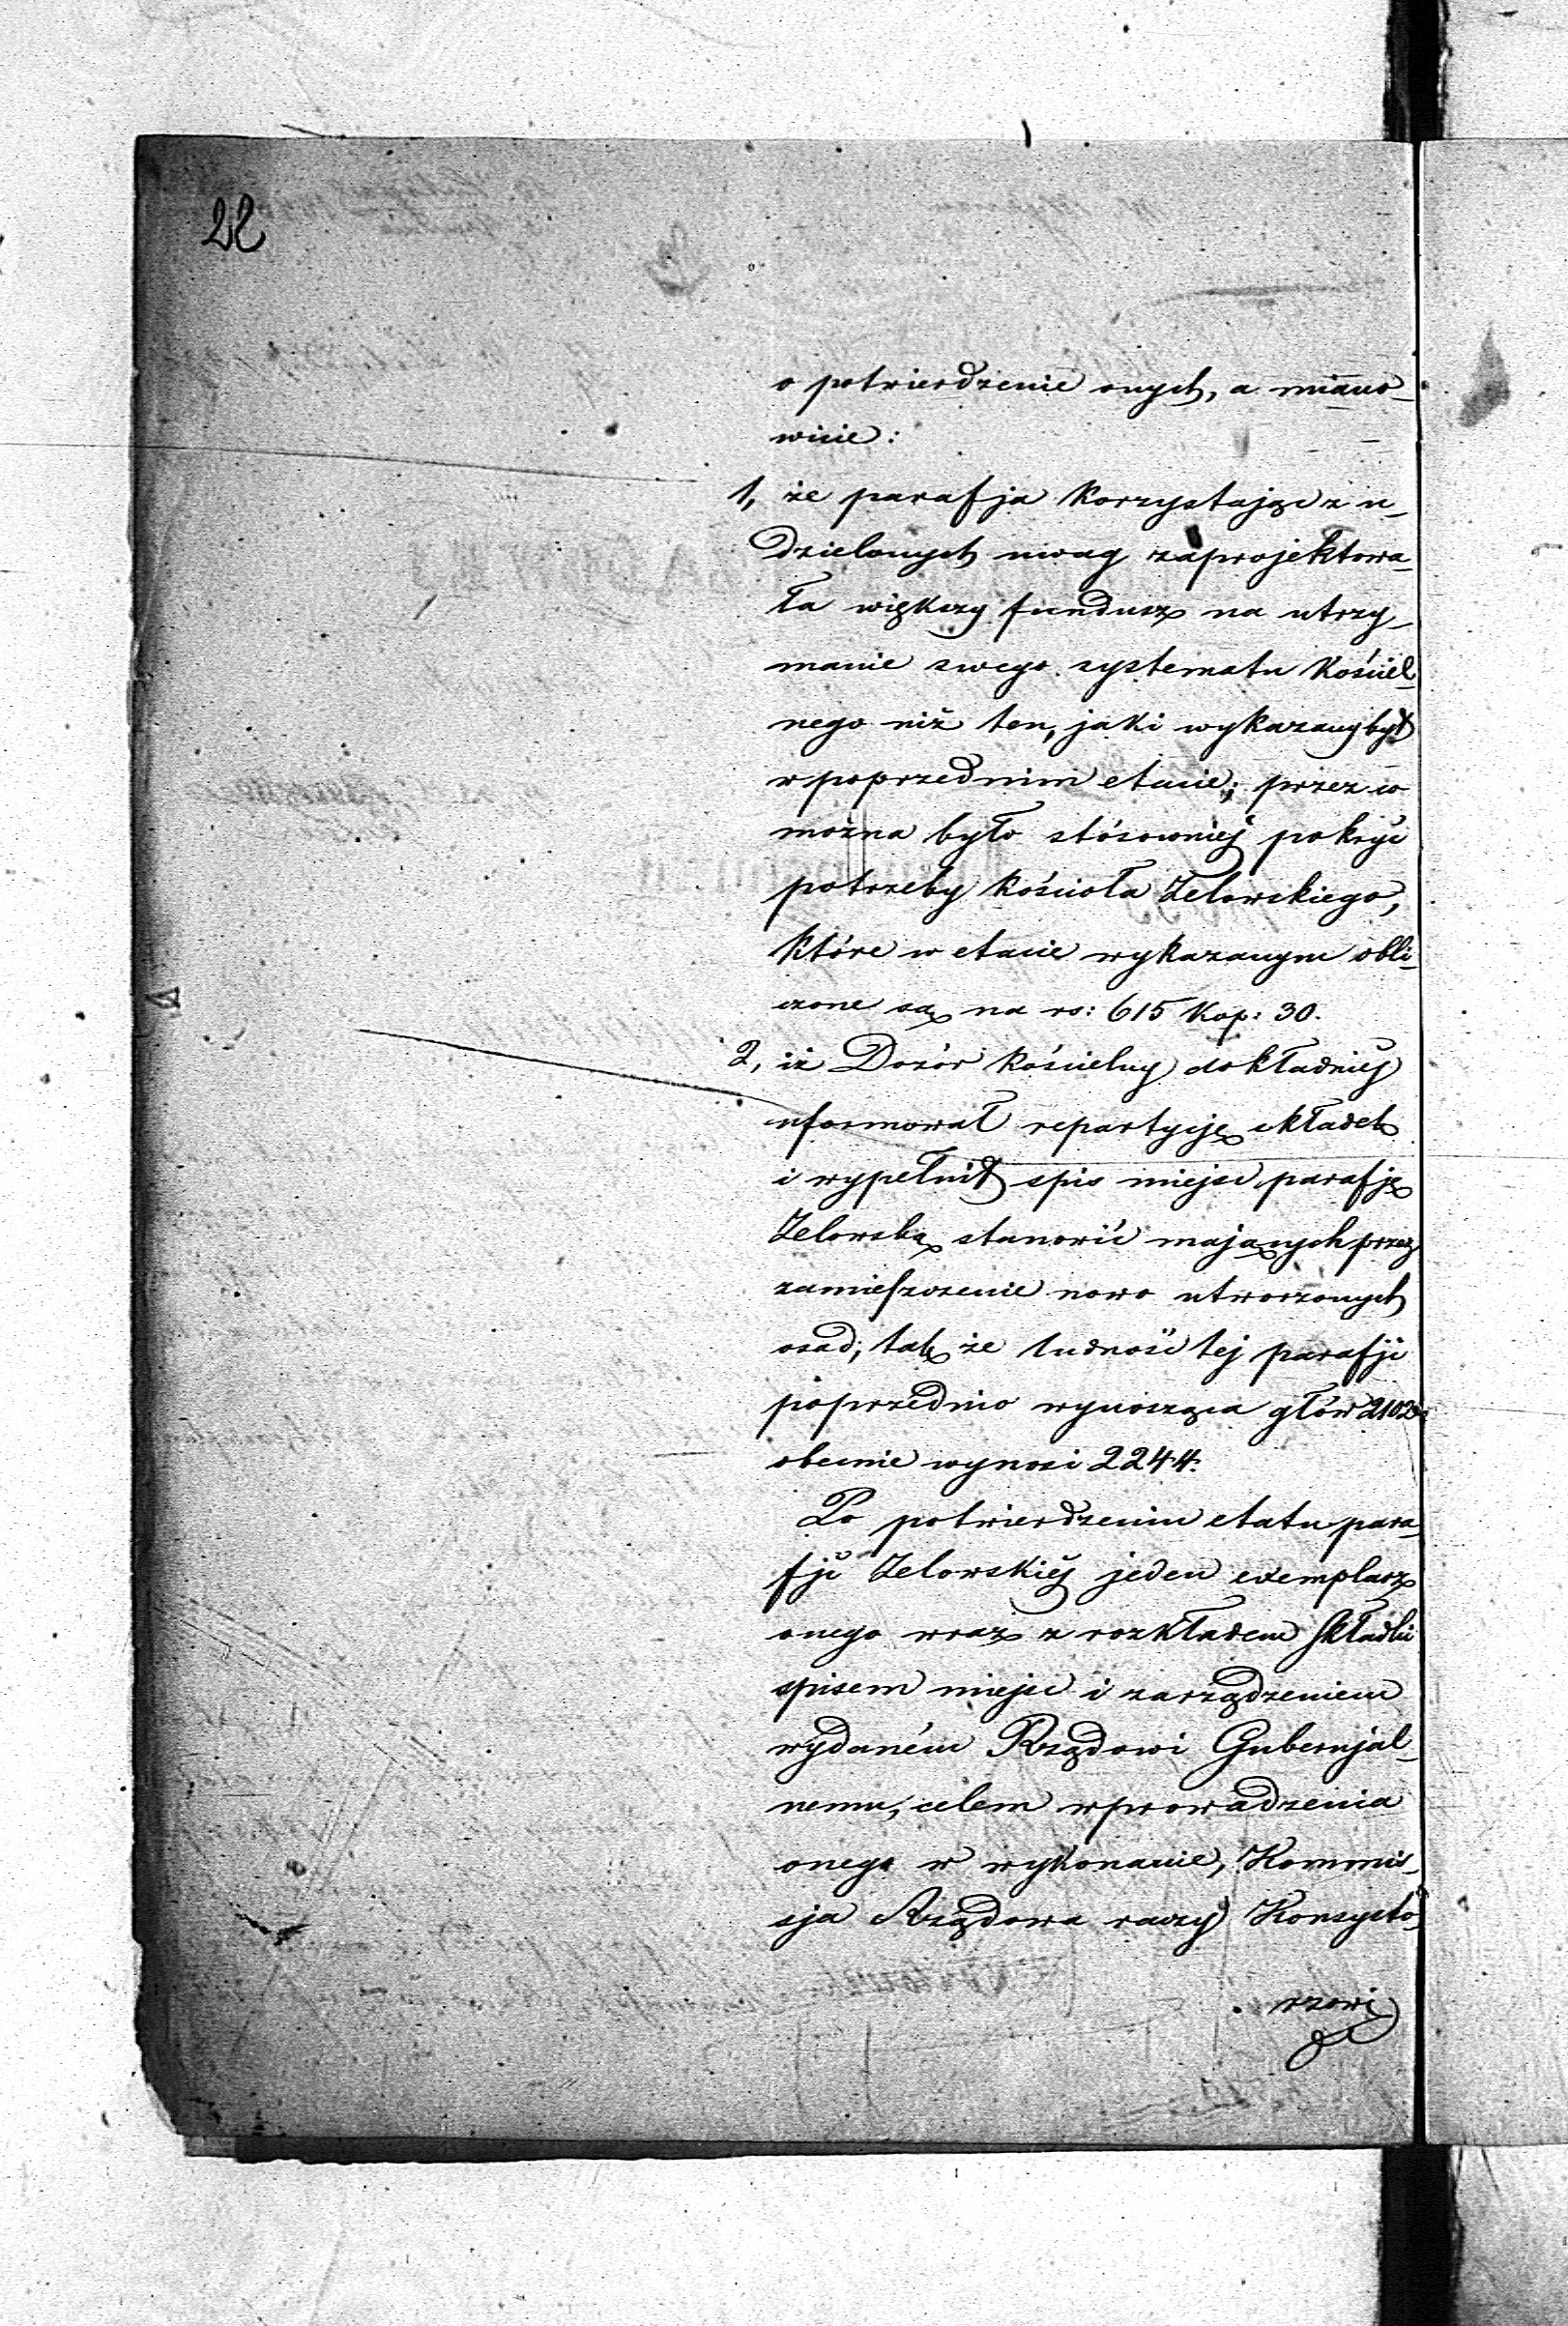 22
o potwierdzenie onych, a miano-
wicie:
1, że parafja korzystając z u-
dzielonych uwag zaprojektowa-
ła większy fundusz na utrzy-
manie swego systematu kościel-
nego niż ten, jaki wykazany był
w poprzednim etacie; przez co
można było stósowniej pokryć
potrzeby kościoła Zelowskiego,
które w etacie wykazanym obli-
czone są na rs: 615 kop: 30.
2, iż Dozór kościelny dokładniej
uformował repartycję składek
i wypełnił spis miejsc parafję
Zelowską stanowić mających przez
zamieszczenie nowo utworzonych
osad; tak że ludność tej parafji
poprzednio wynosząca głów 2102
obecnie wynosi 2244.
Po potwierdzeniu etatu para-
fji Zelowskiej jeden exemplarz
onego wraz z rozkładem składki
spisem miejsc i zarządzeniem
wydaném Rządowi Gubernjal-
nemu, celem wprowadzenia
onego w wykonanie, Kommis-
sja Rządowa raczy Konsysto-
rzowi